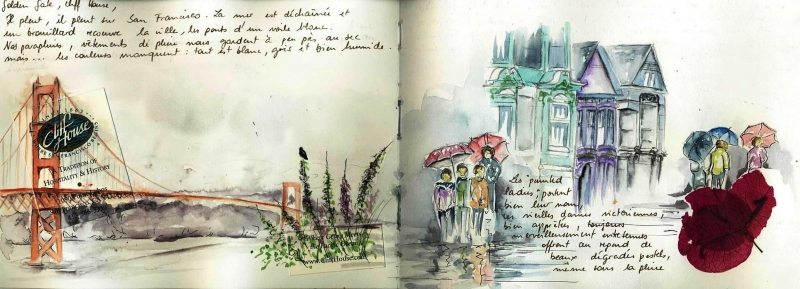 Golden Gate, Cliff House,
Il pleut, il pleut sur San Francisco. La mer est déchaînée et
un brouillard recouvre la ville, les ponts d'un voile blanc.
Nos parapluies, vêtements de pluie nous gardent à peu près au sec
mais... les couleurs manquent : tout est blanc, gris et bien humide.
Cliff
House
SAN FRANCISCO
TRADITION OF
HOSPITALITY & HISTORY
www.cliffhouse.com
Les "painted
ladies" portent
bien leur nom,
ces vieilles dames victoriennes,
bien apprêtées, toujours
merveilleusement entretenues
offrent au regard de
beaux dégradés pastels,
même sous la pluie